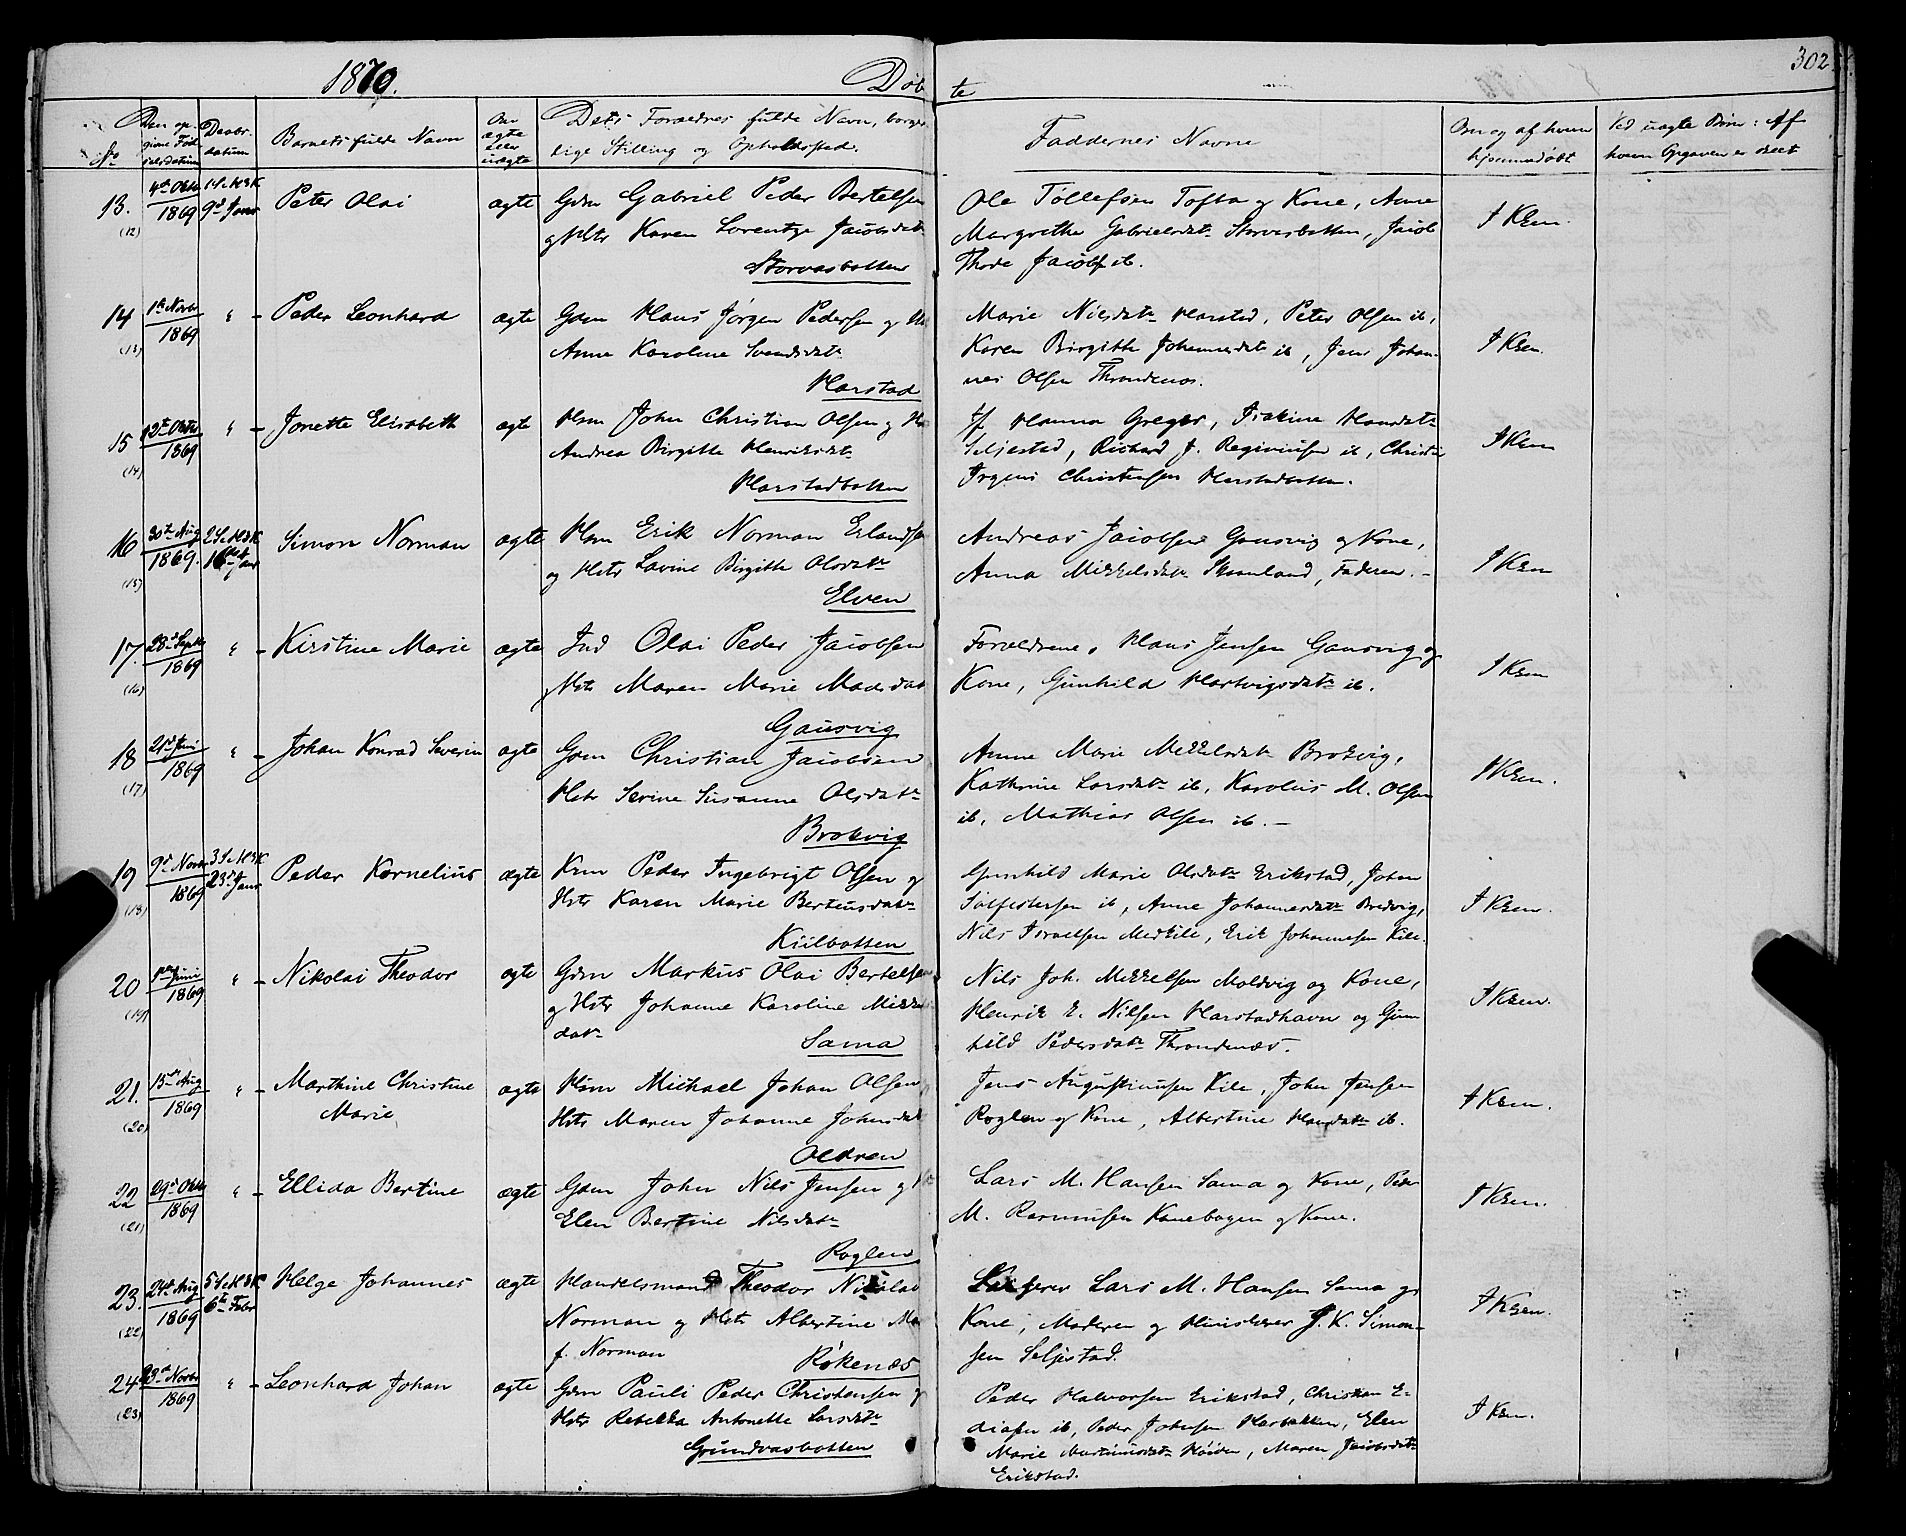 1870.
Døb
te
302
No
Den opgivne Fødselsdatum
Daabsdatum
Barnets fulde Navn
Om ægte eller uægte
Dets Forældres fulde Navn, borgerlige Stilling og Opholdssted.
Faddernes Navne
Om og af hvem hjemmedøbt
Ved uægte Børn: Af hvem Opgaven er skeet
13. (12) 4de Oktbr 1869 9d Janr Peter Olai ægte Gdm Gabriel Peder Bertelsen
og Hstr Karen Lorentze Jacobsdatr
Storvasbotten
Ole Tøllefsen Tofta og Kone, Anne
Margrethe Gabrielsdatr Storvasbotten, Jacob
Thode Jacobs ib.
I Kken.
14 (13) 1te Novbr 1869 " - Peder Leonhard ægte Gdm Hans Jørgen Pedersen og
Anne Karoline Svendsdatr
Harstad
Marie Nilsdatr Harstad, Peter Olsen ib,
Karen Birgitte Johannesdatr ib, Jens Johan-
nes Olsen Throndenæs.
I Kken.
15 (14) 12te Oktbr 1869 " - Jonette Elisabeth ægte Hsm John Christian Olsen og
Andrea Birgitte Henriksdatr
Harstadbotten
Jf Hanna Greger, Hansdatr
Seljestad, Richard J. ib,
Christensen Harstadbotten.
I Kken
16 (15) 30te Aug 1869. 16de Janr Simon Norman ægte Hsm Erik Norman Erlandsen
og Hstr Lavine Birgitte Olsdatr
Elven
Andreas Jacobsen Gausvig og Kone,
Anna Mikkelsdatr Skaanland, Faderen. -
I Kken
17. (16) 28d Septbr 1869 " - Kirstine Marie ægte Ind Olai Peder Jacobsen
og Hstr Maren Marie Madsdatr
Gausvig
Forældrene, Hans Jensen Gausvig og
Kone, Gunhild Hartvigsdatr ib.
I Kken
18 (17) 21d Juni 1869 " - Johan Konrad Severin ægte Gdm Christian Jacobsen
Hstr Serine Susanne Olsdatr
Brokvig
Anne Marie Mikkelsdatr Brokvig,
Kathrine Larsdatr ib, Karolius M. Olsen
ib, Mathias Olsen ib. -
I Kken.
19 (18) 9d Novbr 1869 23d Janr Peder Kornelius ægte Ksm Peder Ingebrigt Olsen og
Hstr Karen Marie Berteusdatr
Kiilbotten
Gunhild Marie Olsdatr Erikstad, Johan
Salfestersen ib, Anne Johannesdatr Bredvig,
Nils Israelsen Medkile, Erik Johannesen Kile.
I Kken.
20 (19) Juni 1869 " - Nikolai Theodor ægte Gdm Markus Olai Bertelsen
og Hstr Johanne Karoline Mikkels
datr
Sama
Nils Joh. Mikkelsen Moldvig og Kone,
Henrik E. Nilsen Harstadhavn og Gun
hild Pedersdatr Throndenæs.
I Kken.
21. (20) 15de Aug 1869 " - Marthine Christine
Marie ægte Hsm Michael Johan Olsen
Hstr Maren Johanne Johnsdatr
Oldren
Jens Augustinusen Kile, John Jensen
Roglen og Kone, Albertine Hansdatr ib.
I Kken.
22 (21) 29d Oktbr 1869 " - Ellida Bertine ægte Gdm John Nils Jensen og
Elen Bertine Nilsdatr
Roglen
Lars M. Hansen Sama og Kone, Peder
M. Rasmusen Kanebogen og Kone.
I Kken.
23. (22) 24d Aug 1869 6te Febr Helge Johannes ægte Handelsmand Theodor Nikolai
Norman og Hstr Albertine
f. Norman
Røkenæs
Lars M. Hansen Sama og
Kone, Moderen og J. K. Simon-
sen Seljestad.
I Kken.
24 (23) 23d Novbr 1869 " - Leonhard Johan ægte Gdm Pauli Peder Christensen og
Hstr Rebekka Antonette Larsdatr
Grundvasbotten
Peder Halvorsen Erikstad, Christian E-
liasen ib, Peder Johnsen Elen
Marie Martinusdatr Maren Jacobsdatr
Erikstad.
I Kken.